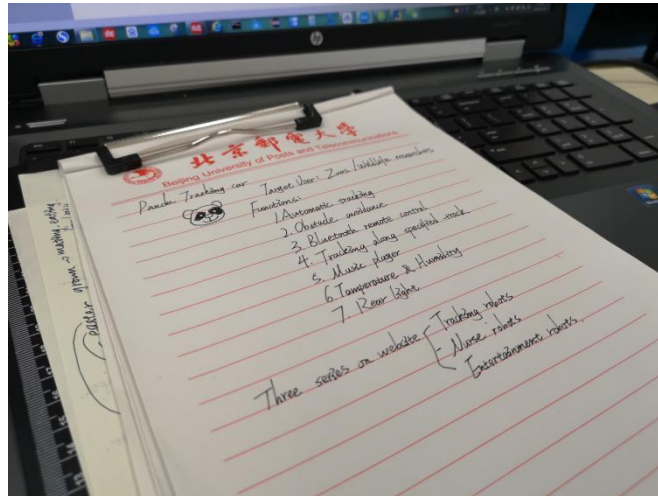 hp
北京郵電大學
Beijing University of Posts and Telecommunications
Panda Tracking car
Target User: Zoos / Wildlife researchers
Functions:
1 Automatic tracking
2. Obstacle avoidance
3. Bluetooth remote control
4. Tracking along specified track
5. Music player
6 Temperature & Humidity
7 Rear light
Three series on website
Tracking robots
Nurse robots
Entertainment robots.